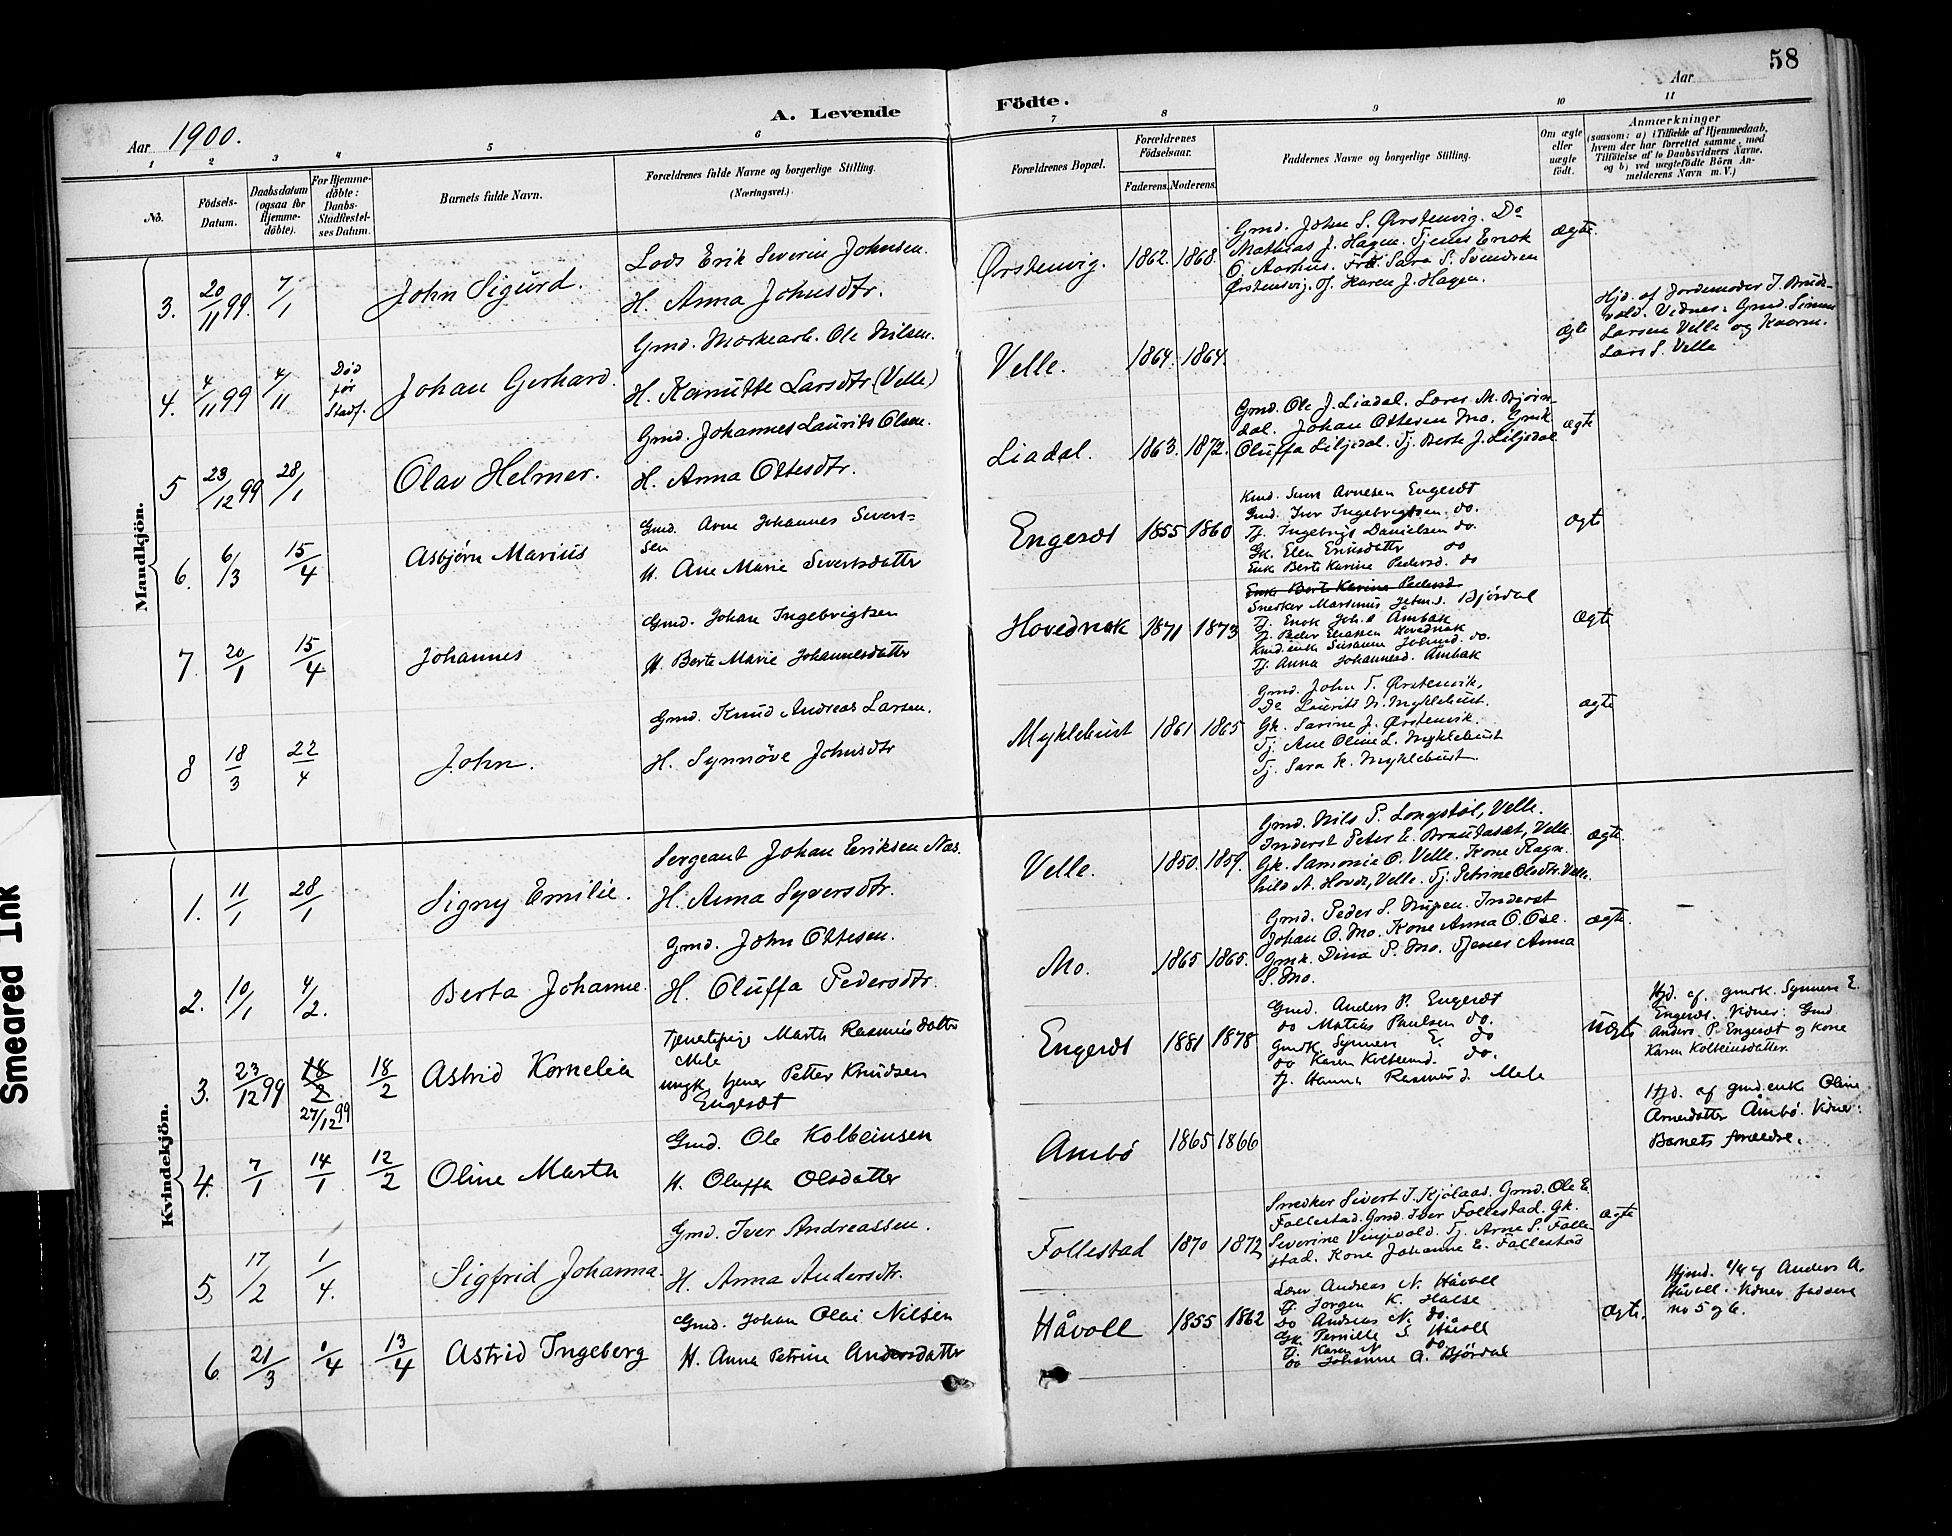 58
Smeared Ink
Aar 1900.
A. Levende
Födte.
Aar
1 2 3 4 5 6 7 8 9 10 11
No.
Födsels-
Datum.
Daabsdatum
(ogsaa for
Hjemme-
döbte).
For Hjemme-
döbte:
Daabs-
Stadfæstel-
ses Datum.
Barnets fulde Navn.
Forældrenes fulde Navne og borgerlige Stilling.
(Næringsvei.)
Forældrenes Bopæl.
Forældrenes
Födselsaar.
Faderens. Moderens.
Faddernes Navne og borgerlige Stilling.
Om ægte
eller
uægte
født.
Anmærkninger
(saasom: a) i Tilfælde af Hjemmedaab,
hvem der har forrettet samme, med
Tilföielse af to Daabsvidners Navne,
og b) ved uægtefödte Börn An-
melderens Navn m. V.)
Mandkjön.
3. 20/11 99. 7/1 John Sigurd.
Lods Erik Severin Johnsen.
H. Anna Johnsdtr.
Ørstenvig. 1862. 1868.
Gmd. John S. Ørstenvig. Do
Mathias J. Hagen. Tjener Enok
O. Aarhus. Frk. Sara S. Svendsen
Ørstenvig. Tj. Karen J. Hagen.
ægte
4. 4/11 99 4/11 Død
før
Stadf.
Johan Gerhard.
Gmd. Markearb. Ole Nilsen.
H. Kanutte Larsdtr (Velle)
Velle. 1864. 1864.
ægte
Hjd. af Jordemoder J. Brude-
vold. Vidner: Gmd. Simen
Larsen Velle og Kaarm.
Lars S. Velle
5 23/12 99 28/1 Olav Helmer.
Gmd. Johannes Laurits Olsen.
H. Anna Ottesdtr.
Liadal. 1863. 1872.
Gmd. Ole J. Liadal. Lærer M. Bjørn-
dal. Johan Ottesen Mo. Gmk
Oluffa Liljedal. Tj. Berte J. Liljedal
ægte
6. 6/3 15/4 Asbjørn Marius
Gmd. Arne Johannes Sivert-
sen
H. Ane Marie Sivertsdatter
Engeset 1855 1860
Kmd. Sivert Arnesen Engeset
Gmd. Iver Ingebrigtsen do.
Tj. Ingebrigt Danielsen do.
Gk. Elen Eriksdatter do
Enk Berte Karine Pedersd. do
ægte
7. 20/1 15/4 Johannes
Gmd. Johan Ingebrigtsen
H. Berte Marie Johannesdatter
Hovednak 1871 1873
Enk Berte Karine Pedersd
Snedker Martinus Johns. Bjørdal
Tj. Enok Joh. Aambak
Tj. Peder Eliassen Hovednak
Kmd. enk Susanna Johnsd. do.
Tj. Anna Johannesd. Ambak
ægte
8 18/3 22/4 John.
Gmd. Knud Andreas Larsen.
H. Synnöve Johnsdtr
Myklebust 1861 1865
Gmd. John T. Ørstenvik,
Do Laurits N. Myklebust.
Gk. Sarine J. Ørstenvik.
Tj. Ane Oline L. Myklebust
Tj. Sara K. Myklebust.
ægte
Kvindekjön.
1. 11/1 28/1 Signy Emilie.
Sergeant Johan Eriksen Næs.
H. Anna Syversdtr.
Velle. 1850. 1859.
Gmd. Nils P. Longstøl, Velle.
Inderst Peter E. Brautaset, Velle.
Gk. Samonie O. Velle. Kone Ragn-
hild A. Hovde, Velle. Tj. Petrine Olsdtr. Velle.
ægte
2. 10/1 4/2. Berta Johanne.
Gmd. John Ottesen.
H. Oluffa Pedersdtr.
Mo. 1865 1865.
Gmd. Peder S. Nupen. Inderst
Johan O. Mo. Kone Anna O. Ose.
Gmk. Dina P. Mo. Tjener Anna
S. Mo.
ægte.
3. 23/12 99 18/2 27/12 99 18/2 Astrid Kornelia
Tjenestepige Marta Rasmusdatter
Mele
ungk. tjener Petter Knudsen
Engeset
Engeset 1881 1878
Gmd. Anders P. Engeset
do Matias Paulsen do.
Gmdk Synnøve E. do
do Karen Kolbeinsd. do.
Tj. Hanna Rasmusd. Mele
uægte
Hjd. af gmdk. Synnøve E.
Engeset. Vidner: Gmd
Anders P. Engeset og kone
Karen Kolbeinsdatter.
4. 7/1 14/1 12/2 Oline Marta
Gmd. Ole Kolbeinsen
H. Oluffa Olsdatter
Aambö 1865 1866
Hjd. af gmd. enke Oline
Arnesdatter Åmbö. Vidner:
Barnets forældre.
5. 17/2 1/4. Sigfrid Johanna.
Gmd. Iver Andreassen.
H. Anna Andersdtr.
Follestad 1870 1872
Snedker Sivert J. Kjølaas. Gmd. Ole E.
Follestad. Gmd. Iver Follestad. Gk.
Severine Vinjevold. Tj. Arne S. Folle-
stad. Kone Johanne E. Follestad
ægte
6. 21/3 1/4 13/4 Astrid Ingeberg
Gmd. Johan Olai Nilsen
H. Anna Petrine Andersdatter
Håvoll 1855 1862
Lærer Andreas N. Håvoll
Tj. Jørgen K. Halse
Do Andreas N. do.
Gk. Pernille S. Håvoll
Tj. Karen N do.
do Johanne A. Bjørdal
ægte.
Hjmd. 1/4 af Anders A.
Håvoll. Vidner faddere
no 5 og 6.